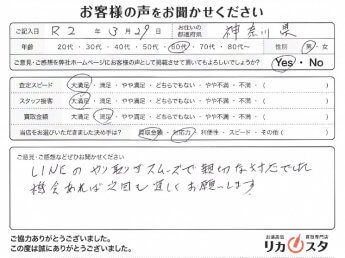 お客様の声をお聞かせください
ご記入日 R2年3月29日 お住いの都道府県 神奈川県
年齢 20代・30代・40代・50代・60代・70代・80代〜 性別 男・女
ご意見・ご感想を弊社ホームページにお客様の声として掲載させて頂いてもよろしいでしょうか? Yes・No
査定スピード 大満足・満足・やや満足・どちらでもない・やや不満・不満・( )
スタッフ接客 大満足・満足・やや満足・どちらでもない・やや不満・不満・( )
買取金額 大満足・満足・やや満足・どちらでもない・やや不満・不満・( )
当店をお選びいただきました決め手は? 買取金額・対応力・利便性・スピード・その他( )
ご意見・ご感想などぜひお聞かせください
LINEのやり取りがスムーズで親切な対応でした
機会あれば次回も宜しくお願いします
ご協力ありがとうございました。
この度は誠にありがとうございました。
お酒高価買取専門店
リカスタ